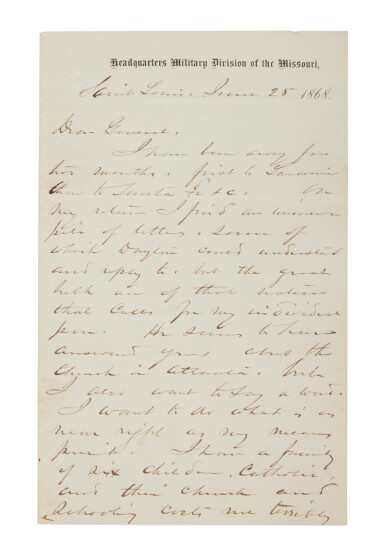 Headquarters Military Division of the Missouri,
Saint Louis, June 25 1868.
Dear General,
I have been away for
two months. first to Laramie
then to Santa Fe &c. On
my return I find an immense
pile of letters. some of
which Dayton could understand
and reply to. but the great
bulk are of that nature
that calls for my individual
pen. He seems to have
answered yours about the
Church in Atlanta. but
I also want to say a word.
I want to do what is as
near right as my means
permit. I have a family
of six children, Catholic,
and their church and
schooling costs me terribly